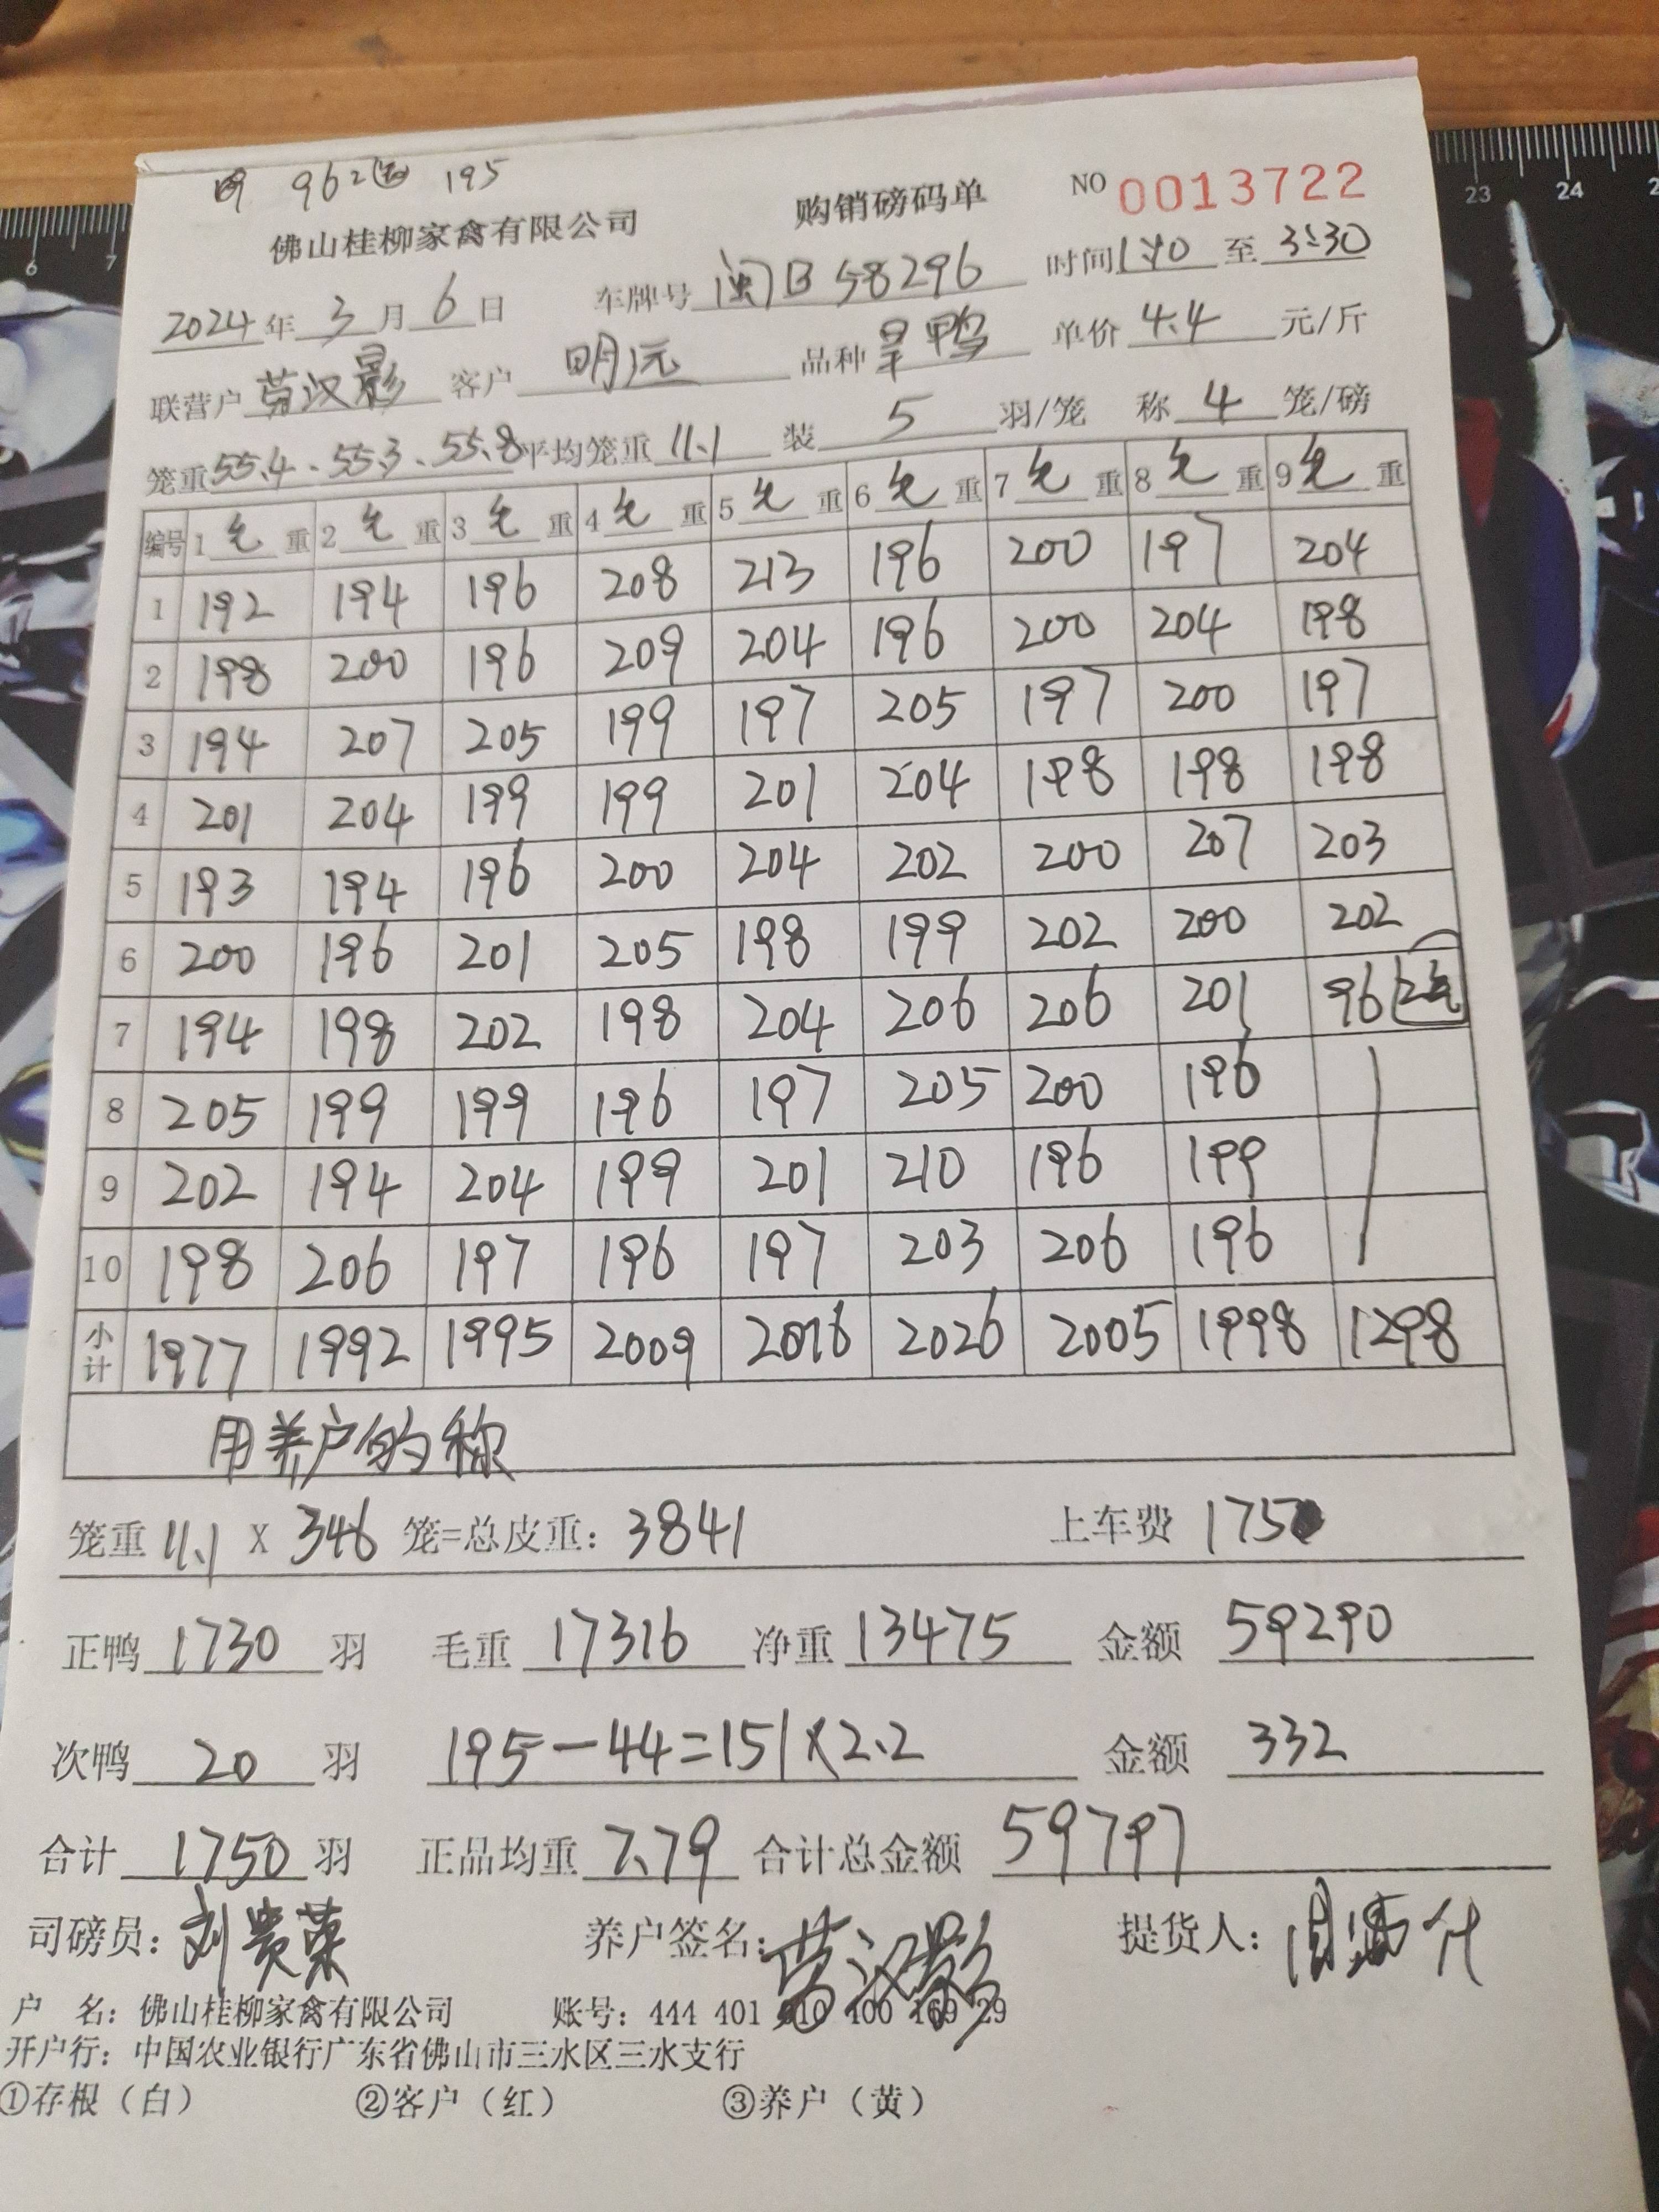 962 195
佛山桂柳家禽有限公司 购销磅码单 NO 0013722
2024年3月6日 车牌号 闽B 58296 时间 1:40 至 3:30
联营户 劳汉影 客户 明沅 品种 旱鸭 单价 4.4 元/斤
笼重 55.4、55.3、55.8 平均笼重 11.1 装 5 羽/笼 称 4 笼/磅
编号 1 毛 重 2 毛 重 3 毛 重 4 毛 重 5 毛 重 6 毛 重 7 毛 重 8 毛 重 9 毛 重
1 192 194 196 208 213 196 200 197 204
2 198 200 196 209 204 196 200 204 198
3 194 207 205 199 197 205 197 200 197
4 201 204 199 199 201 204 198 198 198
5 193 194 196 200 204 202 200 207 203
6 200 196 201 205 198 199 202 200 202
7 194 198 202 198 204 206 206 201 96
8 205 199 199 196 197 205 200 196
9 202 194 204 199 201 210 196 199
10 198 206 197 196 197 203 206 196
小计 1977 1992 1995 2009 2016 2026 2005 1998 1298
用养户的称
笼重 11.1 X 346 笼=总皮重: 3841 上车费 1750
正鸭 1730 羽 毛重 17316 净重 13475 金额 59290
次鸭 20 羽 195-44=151×2.2 金额 332
合计 1750 羽 正品均重 7.79 合计总金额 59797
司磅员: 刘贵荣 养户签名: 劳汉影 提货人:
户 名: 佛山桂柳家禽有限公司 账号: 444 401 010 400 169 29
开户行: 中国农业银行广东省佛山市三水区三水支行
①存根（白） ②客户（红） ③养户（黄）